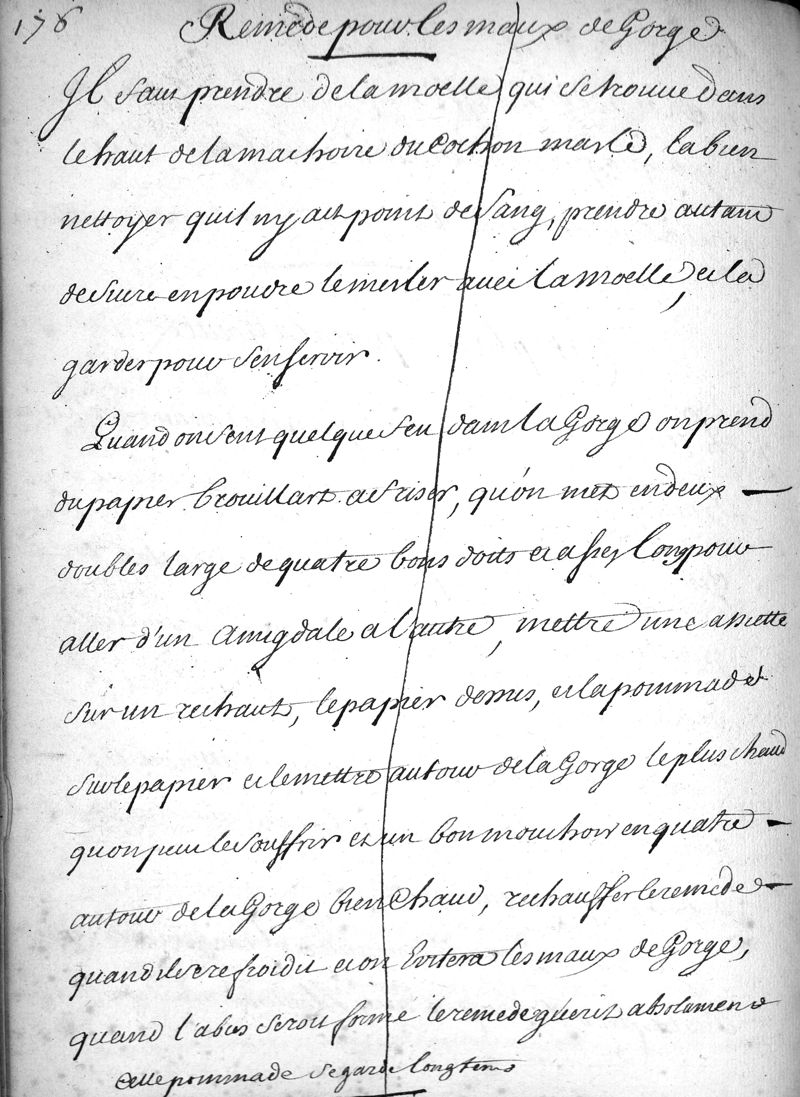 176
Remede pour les maux de Gorge
Il faut prendre de la moelle qui se trouve dans
le haut de la machoire du cochon masle, la bien
nettoyer quil ny ait point de sang, prendre autant
de sucre en poudre le mesler avec la moelle, et la
garder pour sen servir.
Quand on sent quelque feu dans la Gorge on prend
du papier brouillart a friser, qu'on met en deux
doubles large de quatre bons doits et assez long pour
aller d'un amigdale a l'autre, mettre une assiette
sur un rechaut, le papier dessus, et la pommade
sur le papier et le mettre autour de la Gorge le plus chaud
quon peut le souffrir et un bon mouchoir en quatre
autour de la Gorge bien Chaud, rechauffer le remede
quand il se refroidit et on Evitera les maux de Gorge,
quand l'abces seroit formé le remede guerit absolument
cette pommade se garde longtems